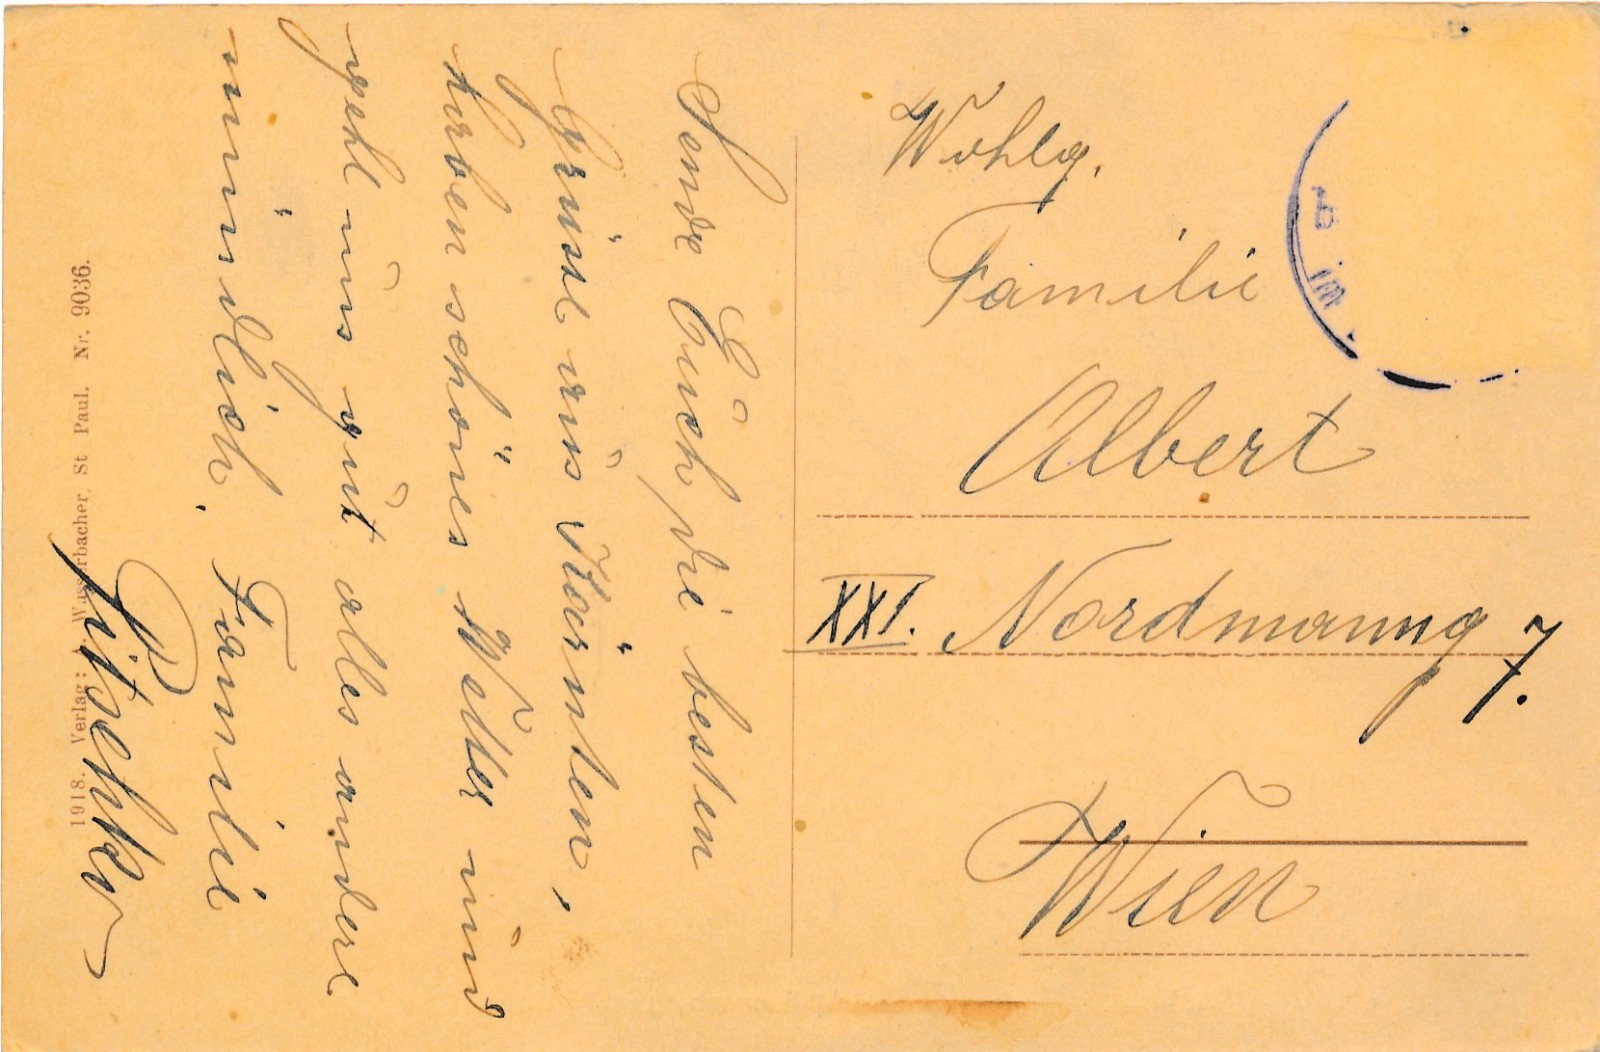 Sende Euch die besten
Grüsse aus Kärnten,
haben schönes Wetter und
geht uns gut alles andere
mündlich. Familie
Pitschko
Wohlg.
Familie
Albert
XXI. Nordmanng 7.
Wien
1918. Verlag: Wasserbacher, St Paul. Nr. 9036.